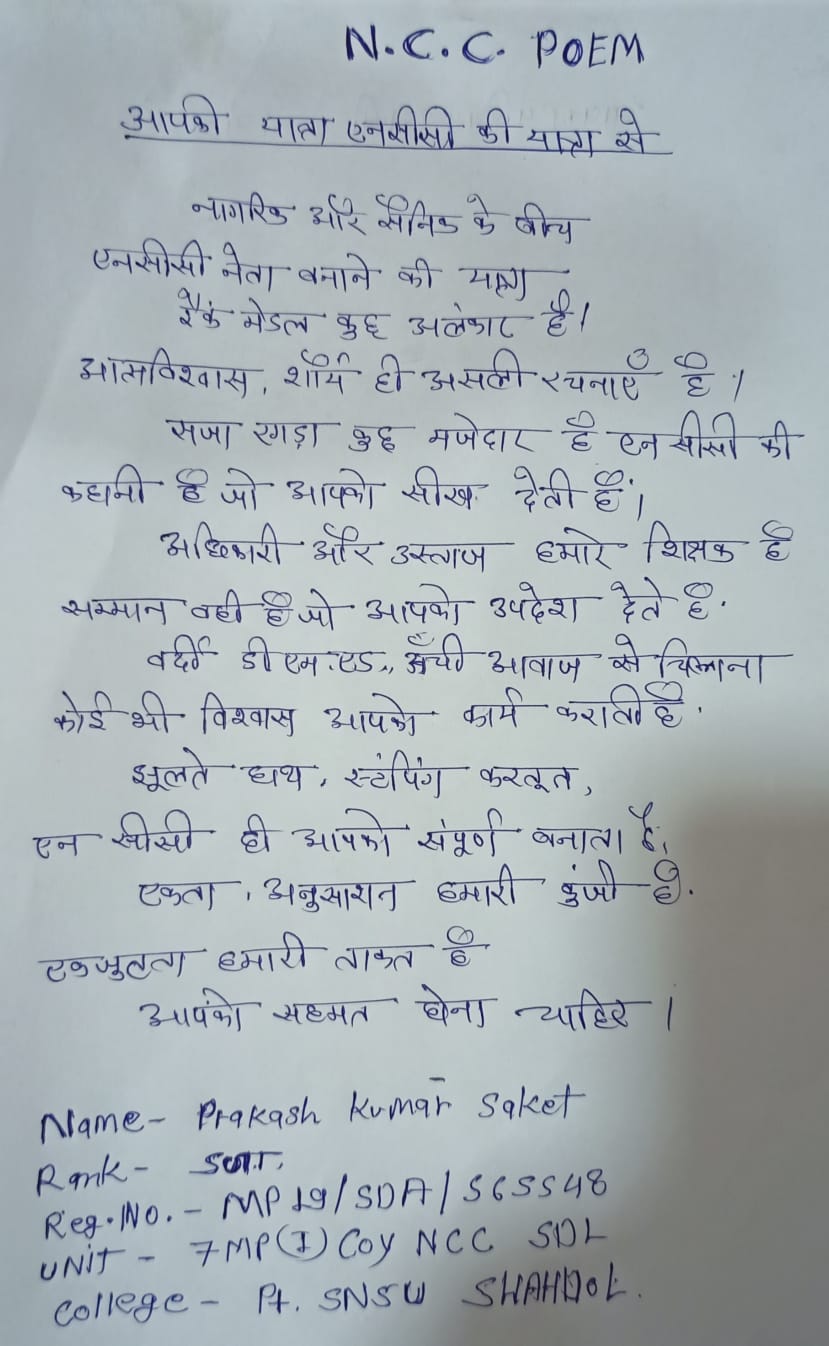 N.C.C. POEM
आपकी यात्रा एनसीसी की यात्रा से
नागरिक और सैनिक के बीच
एनसीसी नेता बनाने की यात्रा
रैंक मेडल कुछ अलंकार है।
आत्मविश्वास, शौर्य ही असली रचनाएँ है।
सजा रगड़ा कुछ मजेदार है एन सीसी की
कहानी है जो आपको सीख देती है।
अधिकारी और उस्ताज हमारे शिक्षक है
सम्मान वही है जो आपको उपदेश देते है.
वर्दी डी एम.एस., ऊँची आवाज से चिल्लाना
कोई भी विश्वास आपको कार्य कराती है.
झूलते हाथ, स्टंपिंग करतूत,
एन सीसी ही आपको संपूर्ण बनाता है,
एकता, अनुसाशन हमारी कुंजी है.
एकजुटता हमारी ताकत है
आपको सहमत होना चाहिए।
Name- Prakash Kumar Saket
Rank-
Reg.No. - MP19/SDA/565548
UNIT - 7MP(I) Coy NCC SDL
College - Pt. SNSU SHAHDOL.